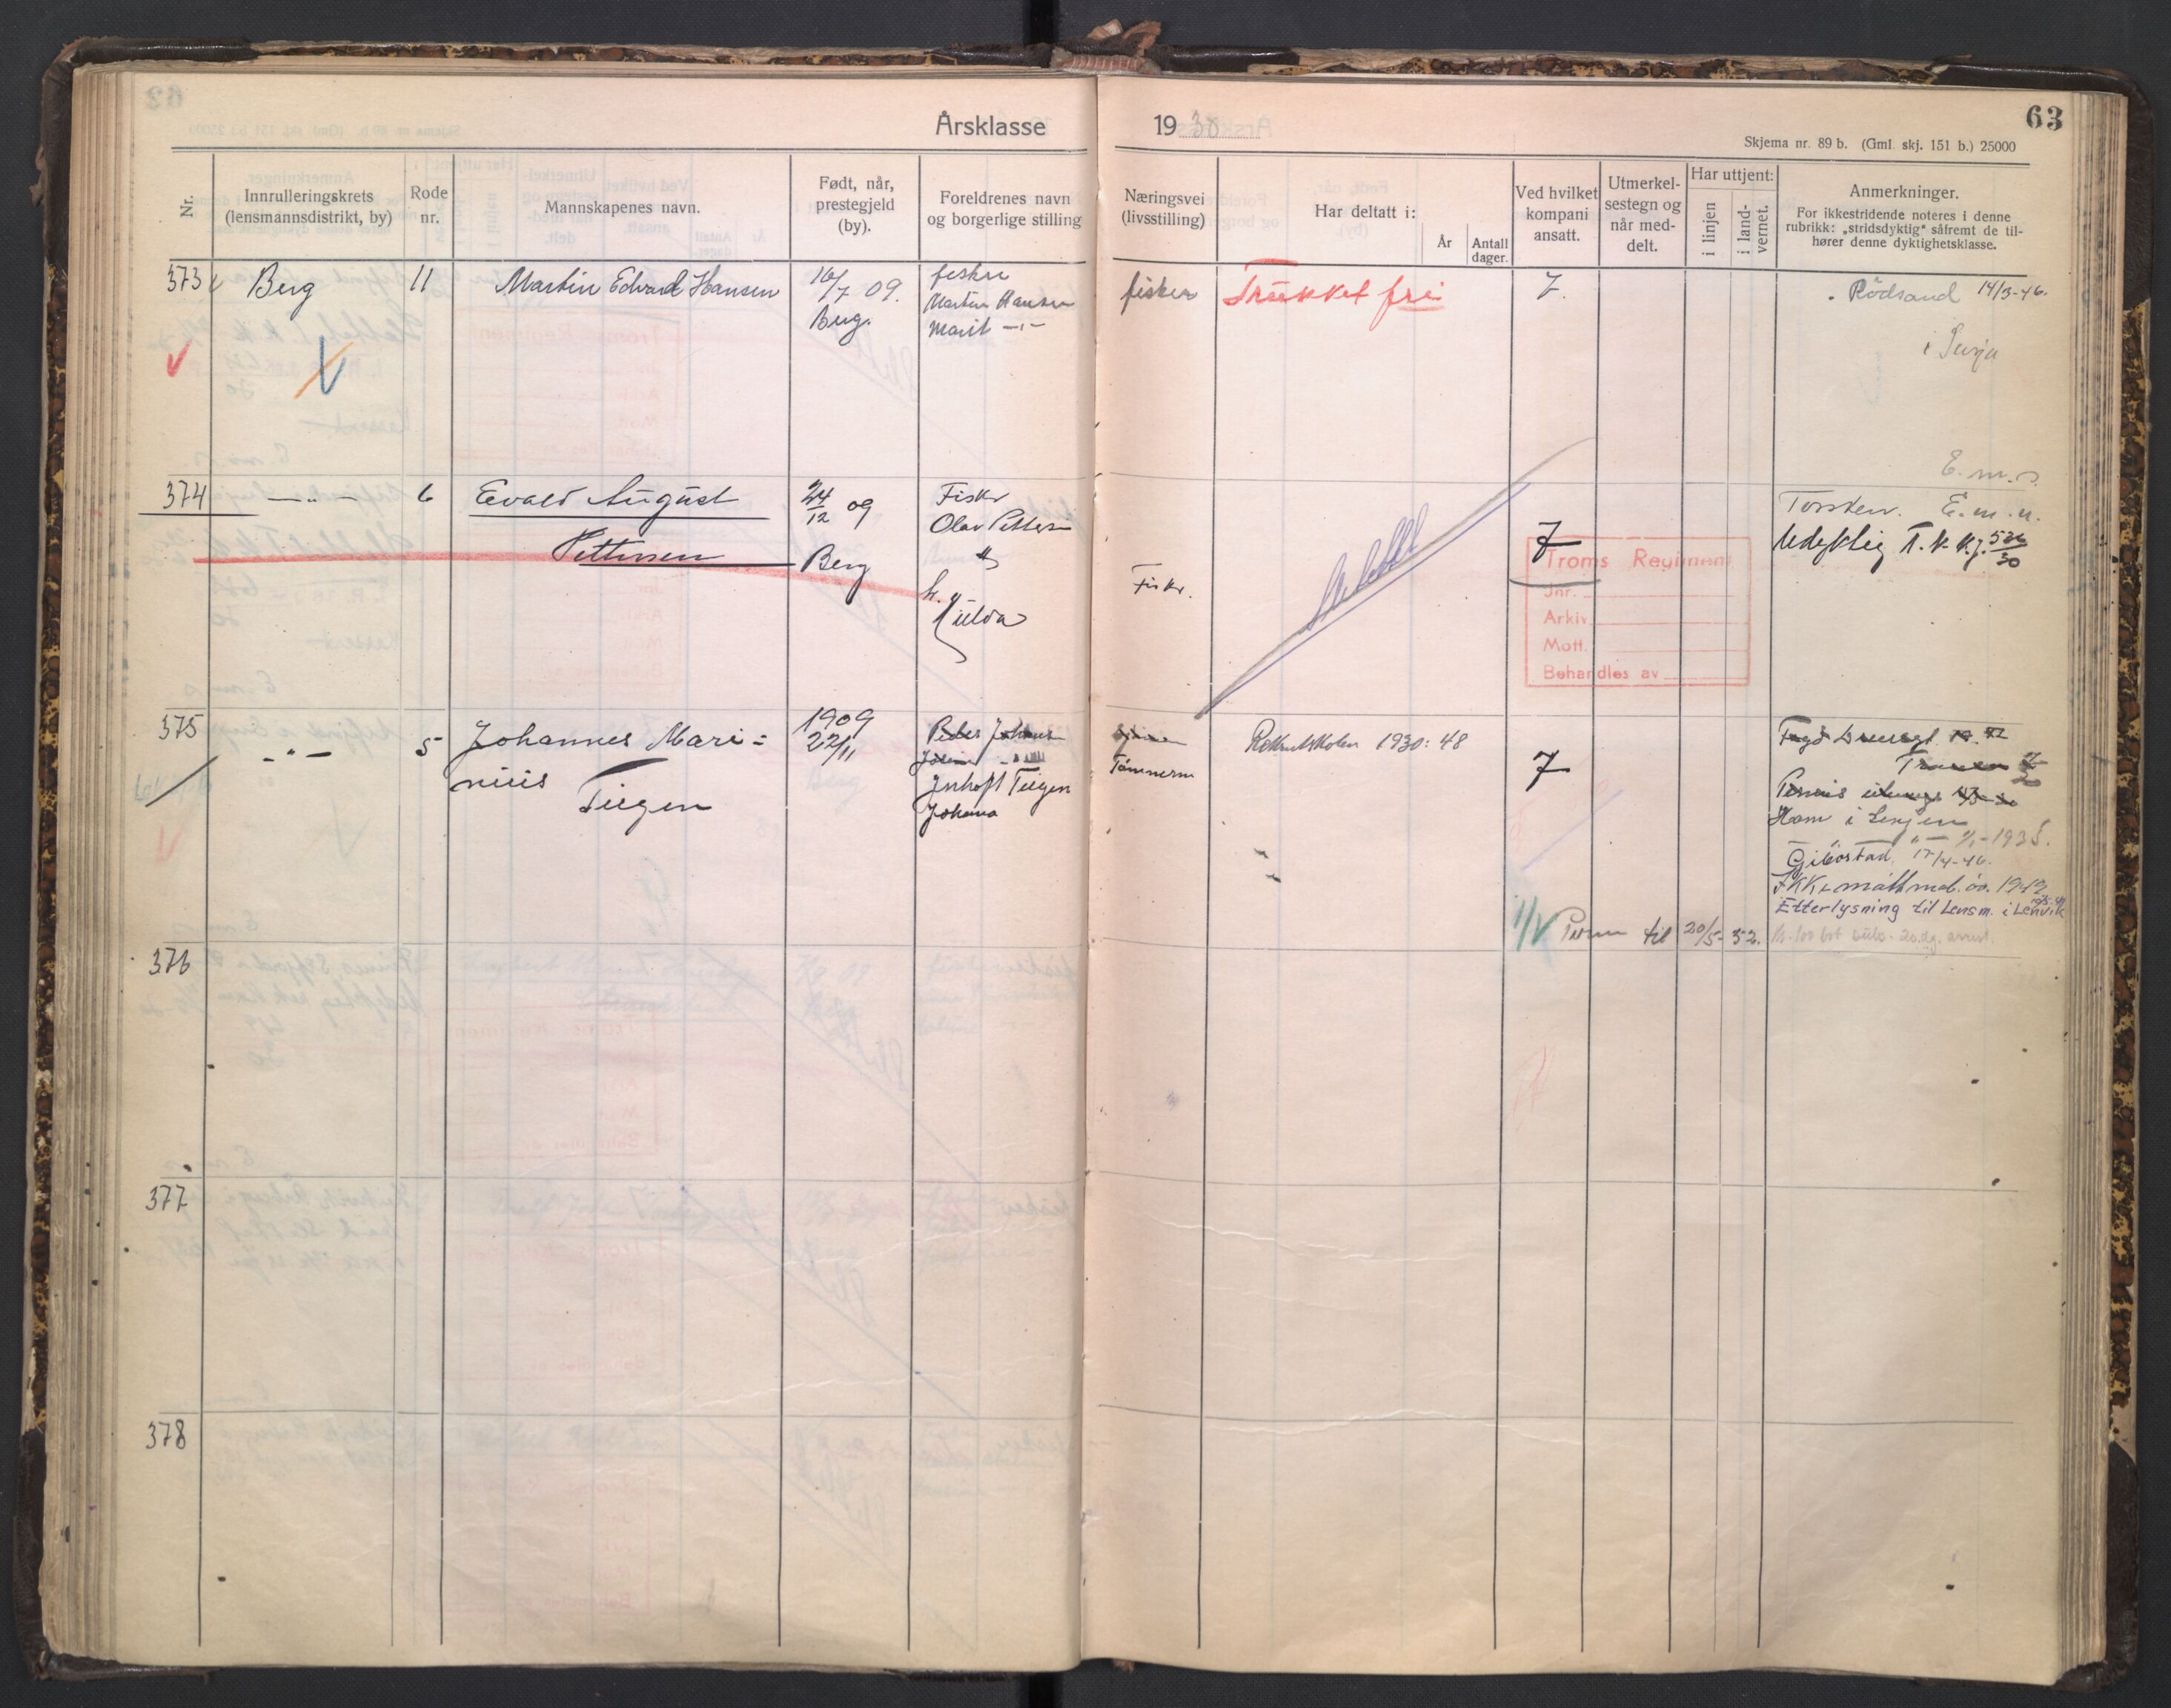 Årsklasse 1930
63
Skjema nr. 89 b. (Gml. skj. 151 b.) 25000
Nr.
Innrulleringskrets
(lensmannsdistrikt, by)
Rode
nr.
Mannskapenes navn.
Født, når,
prestegjeld
(by).
Foreldrenes navn
og borgerlige stilling
Næringsvei
(livsstilling)
Har deltatt i:
År
Antall
dager.
Ved hvilket
kompani
ansatt.
Utmerkel-
sestegn og
når med-
delt.
Har uttjent:
i linjen
i land-
vernet.
Anmerkninger.
For ikkestridende noteres i denne
rubrikk: „stridsdyktig“ såfremt de til-
hører denne dyktighetsklasse.
373
Berg
11
Martin Edvard Hansen
16/7 09.
Berg.
fisker
Martin Hansen
Marit -"-
fisker
Trukket fri
7.
Rödsand 14/3-46.
i Senja
E. m. s.
374
-"-
6
Evald August
Pettersen
24/12 09
Berg
Fiskr
Olav Petters
h.
Hulda
Fiskr.
Slettet
7
Torsken. E. m. u.
Udyktig T. k. k. j. 536/30
Troms Regiment
Jnr.
Arkiv
Mott.
Behandles av
375
-"-
5
Johannes Mari=
nius
Teigen
1909
22/11
Peder Johans
Jenhoft Teigen
Johana
Tömmerm
Rekrutskolen 1930: 48
7
Ham i Senjen
-"- 1/1-1935.
Gibostad 17/4-46.
Etterlysning til Lensm. i Lenvik
Perm til 20/5-52.
376
377
378